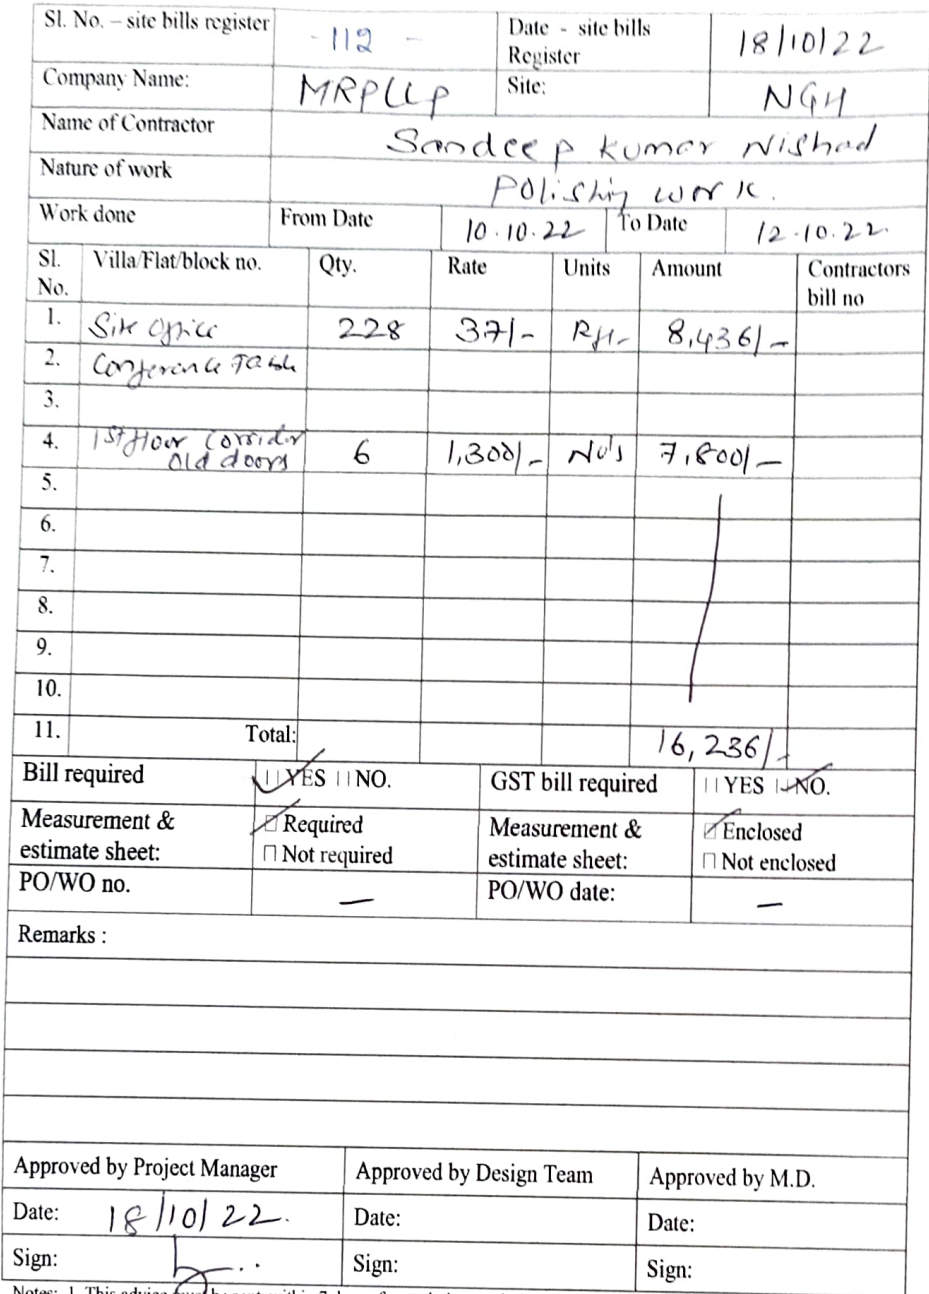 Sl. No. – site bills register - 112 - Date - site bills Register 18/10/22
Company Name: MRPLLP Site: NGH
Name of Contractor Sandeep kumar Nishad
Nature of work Polishing work.
Work done From Date 10.10.22 To Date 12.10.22.
Sl. No. Villa/Flat/block no. Qty. Rate Units Amount Contractors bill no
1. Site office 228 37/- Rft- 8,436/-
2. Conference Table
3.
4. 1st floor Corridor old doors 6 1,300/- No's 7,800/-
5.
6.
7.
8.
9.
10.
11. Total: 16,236/-
Bill required YES NO. GST bill required YES NO.
Measurement & estimate sheet: Required Not required Measurement & estimate sheet: Enclosed Not enclosed
PO/WO no. — PO/WO date: —
Remarks :
Approved by Project Manager Approved by Design Team Approved by M.D.
Date: 18/10/22. Date: Date:
Sign: Sign: Sign:
Notes: 1. This advice must be sent within 7 days